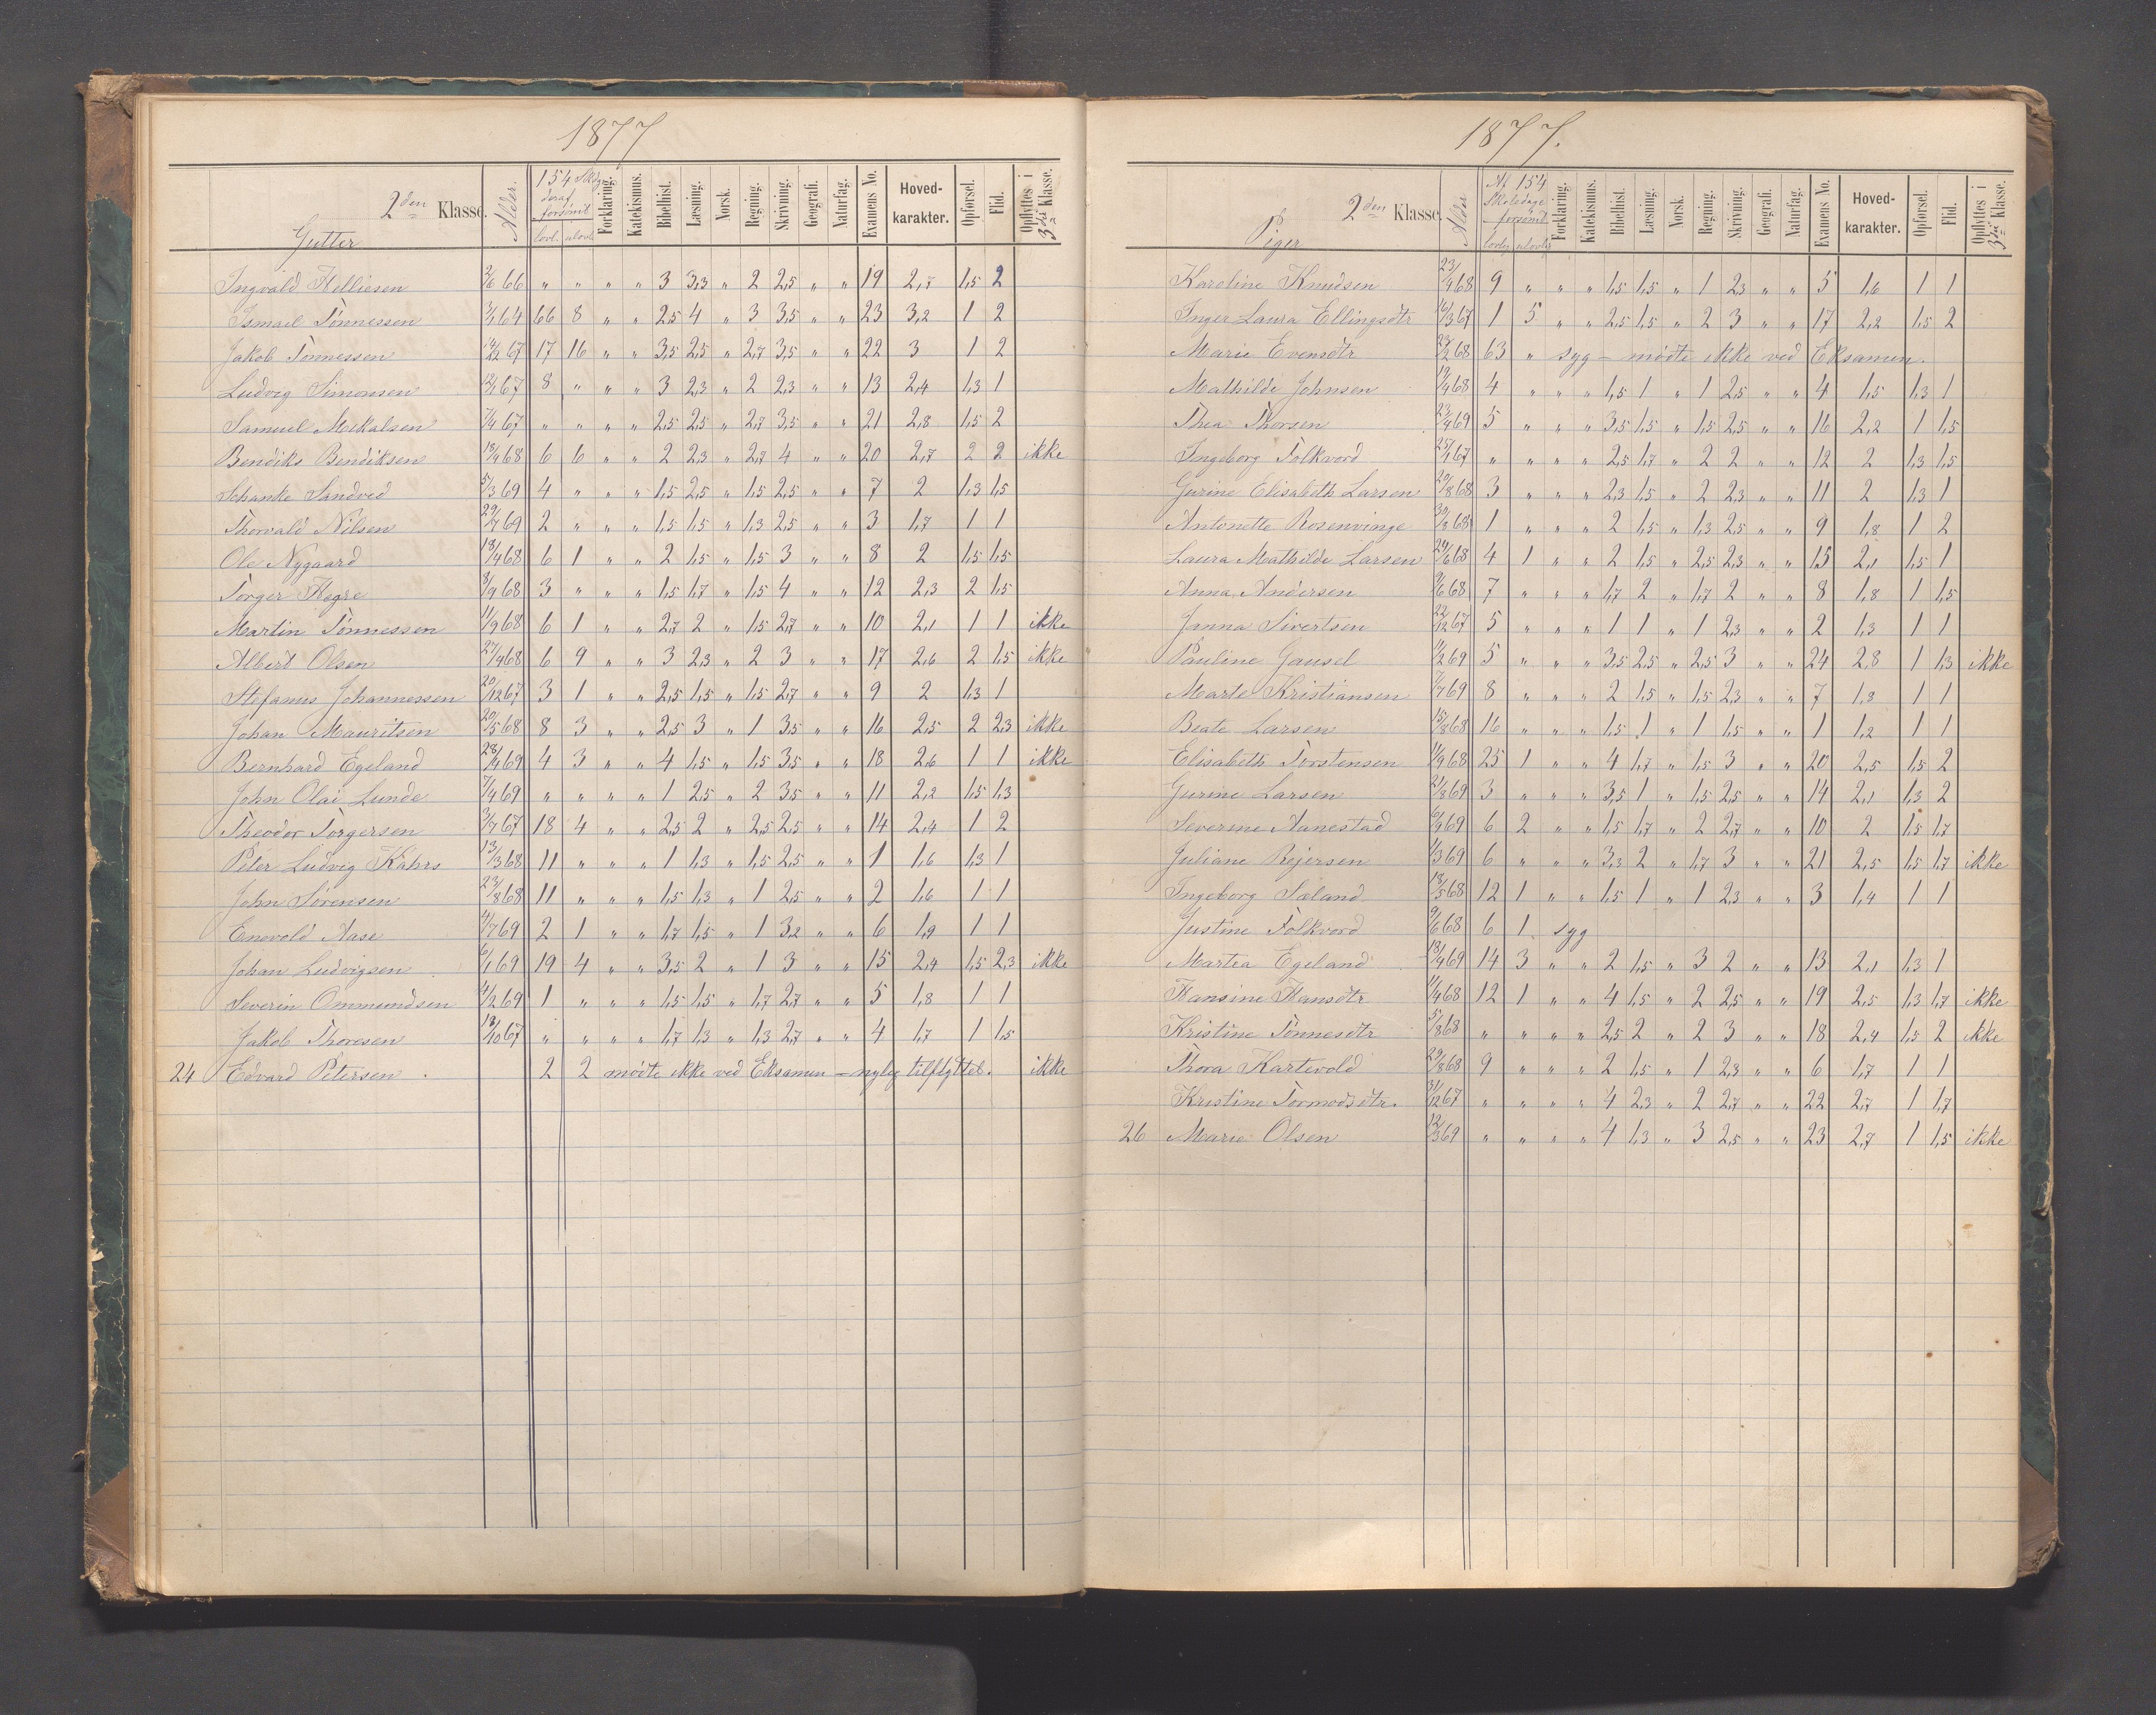 1877
2den Klasse.
Gutter
Alder.
154 Skdg.
deraf
forsömt
lovl. ulovl.
Forklaring. Katekismus. Bibelhist. Læsning. Norsk. Regning. Skrivning. Geografi. Naturfag. Examens No. Hoved-karakter. Opførsel. Flid. Opflyttes i 3die Klasse.
Ingvald Helliesen 2/6 66 " " " " 3 3,3 " 2 2,5 " " 19 2,7 1,5 2
Ismael Tönnessen 3/1 64 66 8 " " 2,5 4 " 3 3,5 " " 23 3,2 1 2
Jakob Tönnessen 67 17 16 " " 3,5 2,5 " 2,7 3,5 " " 22 3 1 2
Ludvig Simonsen 67 8 " " " 3 2,3 " 2 2,3 " " 13 2,4 1,3 1
Samuel Mikalsen 7/4 67 " " " " 2,5 2,5 " 2,7 3,5 " " 21 2,8 1,5 2
Bendiks Bendiksen 18/9 68 6 6 " " 2 2,3 " 2,7 4 " " 20 2,7 2 2 ikke
Schanke Sandved 5/3 69 4 " " " 1,5 2,5 " 1,5 2,5 " " 7 2 1,3 1,5
Thorvald Nilsen 29/7 69 2 " " " 1,5 1,5 " 1,3 2,5 " " 3 1,7 1 1
Ole Nygaard 18/4 68 6 1 " " 2 1,5 " 1,5 3 " " 8 2 1,5 1,5
Torger Hegre 8/9 68 3 " " " 1,5 1,7 " 1,5 4 " " 12 2,3 2 1,5
Martin Tönnessen 11/9 68 6 1 " " 2,7 2 " 1,5 2,7 " " 10 2,1 1 1 ikke
Albert Olsen 27/4 68 6 9 " " 3 2,3 " 2 3 " " 17 2,6 2 1,5 ikke
Stefanus Johannessen 20/12 67 3 1 " " 2,5 1,5 " 1,5 2,7 " " 9 2 1,3 1
Johan Mauritsen 20/5 68 8 3 " " 2,5 3 " 1 3,5 " " 16 2,5 2 2,3 ikke
Bernhard Egeland 28/4 69 4 3 " " 4 1,5 " 1,5 3,5 " " 18 2,6 1 1 ikke
John Olai Lunde 7/4 69 " " " " 1 2,5 " 2 3,5 " " 11 2,2 1,5 1,3
Theodor Torgersen 3/7 67 18 4 " " 2,5 2 " 2,5 2,5 " " 14 2,4 1 2
Peter Ludvig Kahrs 13/3 68 11 " " " 1 1,3 " 1,5 2,5 " " 1 1,6 1,3 1
John Sörensen 23/8 68 11 " " " 1,5 1,3 " 1 2,5 " " 2 1,6 1 1
Enevold Aase 4/7 69 2 1 " " 1,7 1,5 " 1 3,2 " " 6 1,9 1 1
Johan Ludvigsen 6/1 69 19 4 " " 3,5 2 " 1 3 " " 15 2,4 1,5 2,3 ikke
Severin Ommundsen 4/2 69 1 " " " 1,5 1,5 " 1,7 2,7 " " 5 1,8 1 1
Jakob Thoresen 18/10 67 " " " " 1,7 1,3 " 1,3 2,7 " " 4 1,7 1 1,5
24 Edvard Petersen. 2 2 mödte ikke ved Eksamen – nylig tilflyttet. ikke
1877.
2den Klasse
Piger
Alder
Af 154
Skoledage
forsömt
lovlig ulovlig
Forklaring. Katekismus. Bibelhist. Læsning. Norsk. Regning. Skrivning. Geografi. Naturfag. Examens No. Hoved-karakter. Opførsel. Flid. Opflyttes i 3die Klasse.
Karoline Knudsen 23/4 68 9 " " " 1,5 1,5 " 1 2,3 " " 5 1,6 1 1
Inger Laura Ellingsdtr 16/3 67 1 5 " " 2,5 1,5 " 2 3 " " 17 2,2 1,5 2
Marie Evensdtr 68 63 " syg – mödte ikke ved Eksamen.
Mathilde Johnsen 19/4 68 4 " " " 1,5 1 " 1 2,5 " " 4 1,5 1,3 1
Thea Thorsen 23/4 69 5 " " " 3,5 1,5 " 1,5 2,5 " " 16 2,2 1 1,5
Ingeborg Folkvord 25/1 67 " " " " 2,5 1,7 " 2 2 " " 12 2 1,3 1,5
Gurine Elisabeth Larsen 29/8 68 3 " " " 2,3 1,5 " 2 2,3 " " 11 2 1,3 1
Antonette Rosenvinge 30/3 68 1 " " " 2 1,5 " 1,3 2,5 " " 9 1,8 1 2
Laura Mathilde Larsen 24/6 68 4 1 " " 2 1,5 " 2,5 2,3 " " 15 2,1 1,5 1
Anna Andersen 9/6 68 7 " " " 1,7 2 " 1,7 2 " " 8 1,8 1 1,5
Janna Sivertsen 22/12 67 5 " " " 1 1 " 1 2,3 " " 2 1,3 1 1
Pauline Gausel 11/2 69 5 " " " 3,5 2,5 " 2,5 3 " " 24 2,8 1 1,3 ikke
Marte Kristiansen 7/7 69 8 " " " 2 1,5 " 1,5 2,3 " " 7 1,8 1 1
Beate Larsen 15/8 68 16 " " " 1,5 1 " 1 1,5 " " 1 1,2 1 1
Elisabeth Torstensen 11/9 68 25 1 " " 4 1,7 " 1,5 3 " " 20 2,5 1,5 2
Gurine Larsen 21/8 69 3 " " " 3,5 1 " 1,5 2,5 " " 14 2,1 1,3 2
Severine Aanestad 6/9 69 6 2 " " 1,5 1,7 " 2 2,7 " " 10 2 1,5 1,7
Juliane Rejersen 1/3 69 6 " " " 3,3 2 " 1,7 3 " " 21 2,5 1,5 1,7 ikke
Ingeborg Sæland 18/5 68 12 1 " " 1,5 1 " 1 2,3 " " 3 1,4 1 1
Justine Folkvord 9/6 68 6 1 syg
Martia Egeland 18/4 69 14 3 " " 2 1,5 " 3 2 " " 13 2,1 1,3 1
Hansine Hansdtr 11/4 68 12 1 " " 4 1,5 " 2 2,5 " " 19 2,5 1,3 1,7 ikke
Kristine Tönnesdtr 5/8 68 " " " " 2,5 2 " 2 3 " " 18 2,4 1,5 2 ikke
Thora Kartevold 29/8 68 9 " " " 2 1,5 " 1 2,3 " " 6 1,7 1 1
Kristine Tormodsdtr. 31/12 67 " " " " 4 2,3 " 2 2,7 " " 22 2,7 1 1,7
26 Marie Olsen 12/3 69 " " " " 4 1,3 " 3 2,5 " " 23 2,7 1 1,5 ikke